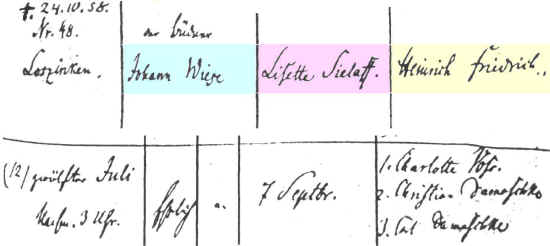 †. 24.10.58.
Nr. 48.
der Büdner
Johann Wiege
Lisette Sielaff.
Heinrich Friedrich.
(12) zwölfter Juli
3 Uhr.
ehelich
7 Septbr.
1. Charlotte Voß.
2. Christian Damaschke
3. Carl Damaschke